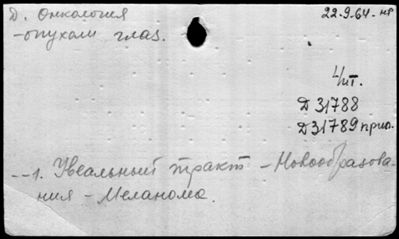 Д. Онкология 22.9.64.-нг
-опухоли глаз.
Шт.
Д 31788
Д 31789 прил.
--1. Увеальный тракт - Новообразова-
ния - Меланома.